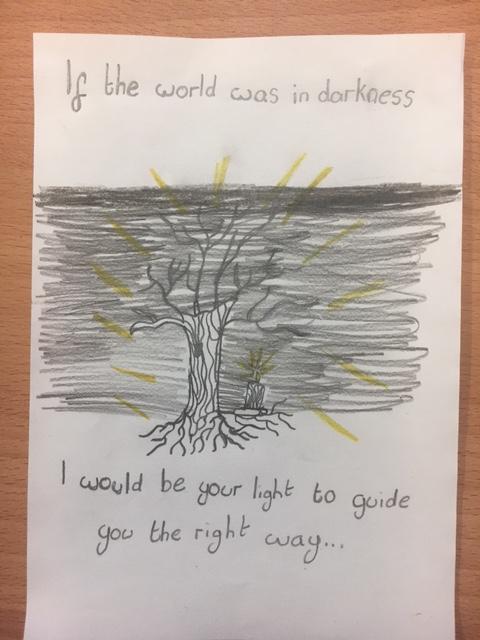 If the world was in darkness
I would be your light to guide
you the right way...